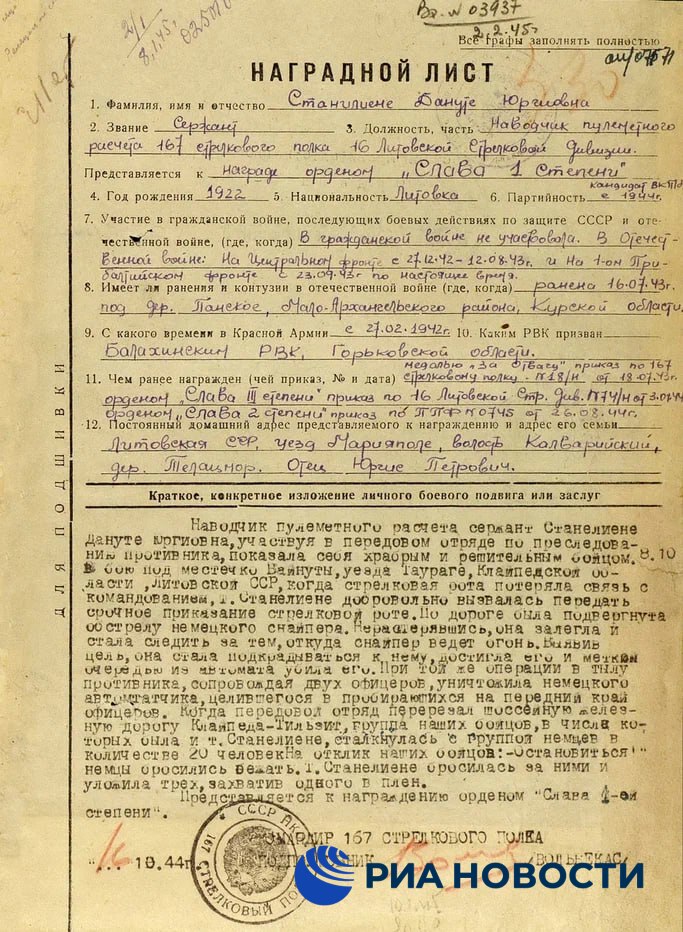 Вх. № 03937
2.2.45г.
8.1.45г.
Все графы заполнять полностью
НАГРАДНОЙ ЛИСТ
1. Фамилия, имя и отчество Станилиене Дануте Юргиовна
2. Звание Сержант 3. Должность, часть Наводчик пулеметного
расчета 167 стрелкового полка 16 Литовской Стрелковой Дивизии.
Представляется к награде орденом „Слава 1 Степени"
4. Год рождения 1922 5. Национальность Литовка 6. Партийность кандидат ВКП(б) с 1944г.
7. Участие в гражданской войне, последующих боевых действиях по защите СССР и оте-
чественной войне, (где, когда) В гражданской войне не участвовала. В Отечест-
венной войне: На Центральном фронте с 27.12.42-12.08.43г. и на 1-ом При-
балтийском фронте с 23.09.43г. по настоящее время.
8. Имеет ли ранения и контузии в отечественной войне (где, когда) ранена 16.07.43г.
под дер. Панское, Мало-Архангельского района, Курской области.
9. С какого времени в Красной Армии с 27.02.1942г. 10. Каким РВК призван
Балахинским РВК, Горьковской области.
11. Чем ранее награжден (чей приказ, № и дата) медалью „За отвагу" приказ по 167
стрелковому полку - №18/н от 18.07.43г.
орденом „Слава III степени" приказ по 16 Литовской Стр. Див. №74/н от
орденом „Слава 2 степени" приказ по ППФ №0745 от 26.08.44г.
12. Постоянный домашний адрес представляемого к награждению и адрес его семьи
Литовская ССР, уезд Марияполе, волость Калварийский,
дер. Отец Юргис Петрович.
Краткое, конкретное изложение личного боевого подвига или заслуг
Наводчик пулеметного расчета сержант Станелиене
Дануте Юргиовна, участвуя в передовом отряде по преследова-
нию противника, показала себя храбрым и решительным бойцом. 8.10
В бою под местечко Вайнуты, уезда Таураге, Клайпедской об-
ласти, Литовской ССР, когда стрелковая рота потеряла связь с
командованием, т. Станелиене добровольно вызвалась передать
срочное приказание стрелковой роте. По дороге была подвергнута
обстрелу немецкого снайпера. Нерастерявшись, она залегла и
стала следить за тем, откуда снайпер ведет огонь. Выявив
цель, она стала подкрадываться к нему, достигла его и меткой
очередью из автомата убила его. При той же операции в тылу
противника, сопровождая двух офицеров, уничтожила немецкого
автоматчика, целившегося в пробирающихся на передний край
офицеров. Когда передовой отряд перерезал шоссейную железе-
ную дорогу Клайпеда-Тильзит, группа наших бойцов, в числе ко-
торых была и т. Станелиене, сталкнулась с группой немцев в
количестве 20 человек. На отклик наших бойцов:-Остановиться!"
немцы бросились бежать. Т. Станелиене бросилась за ними и
уложила трех, захватив одного в плен.
Представляется к награждению орденом "Слава 1-ой
степени".
КОМАНДИР 167 СТРЕЛКОВОГО ПОЛКА
"16 10.44г. ПОДПОЛКОВНИК /ВОЛЬБЕКАС/
СССР НКО
167 СТРЕЛКОВЫЙ ПОЛК
ДЛЯ ПОДШИВКИ
РИА НОВОСТИ